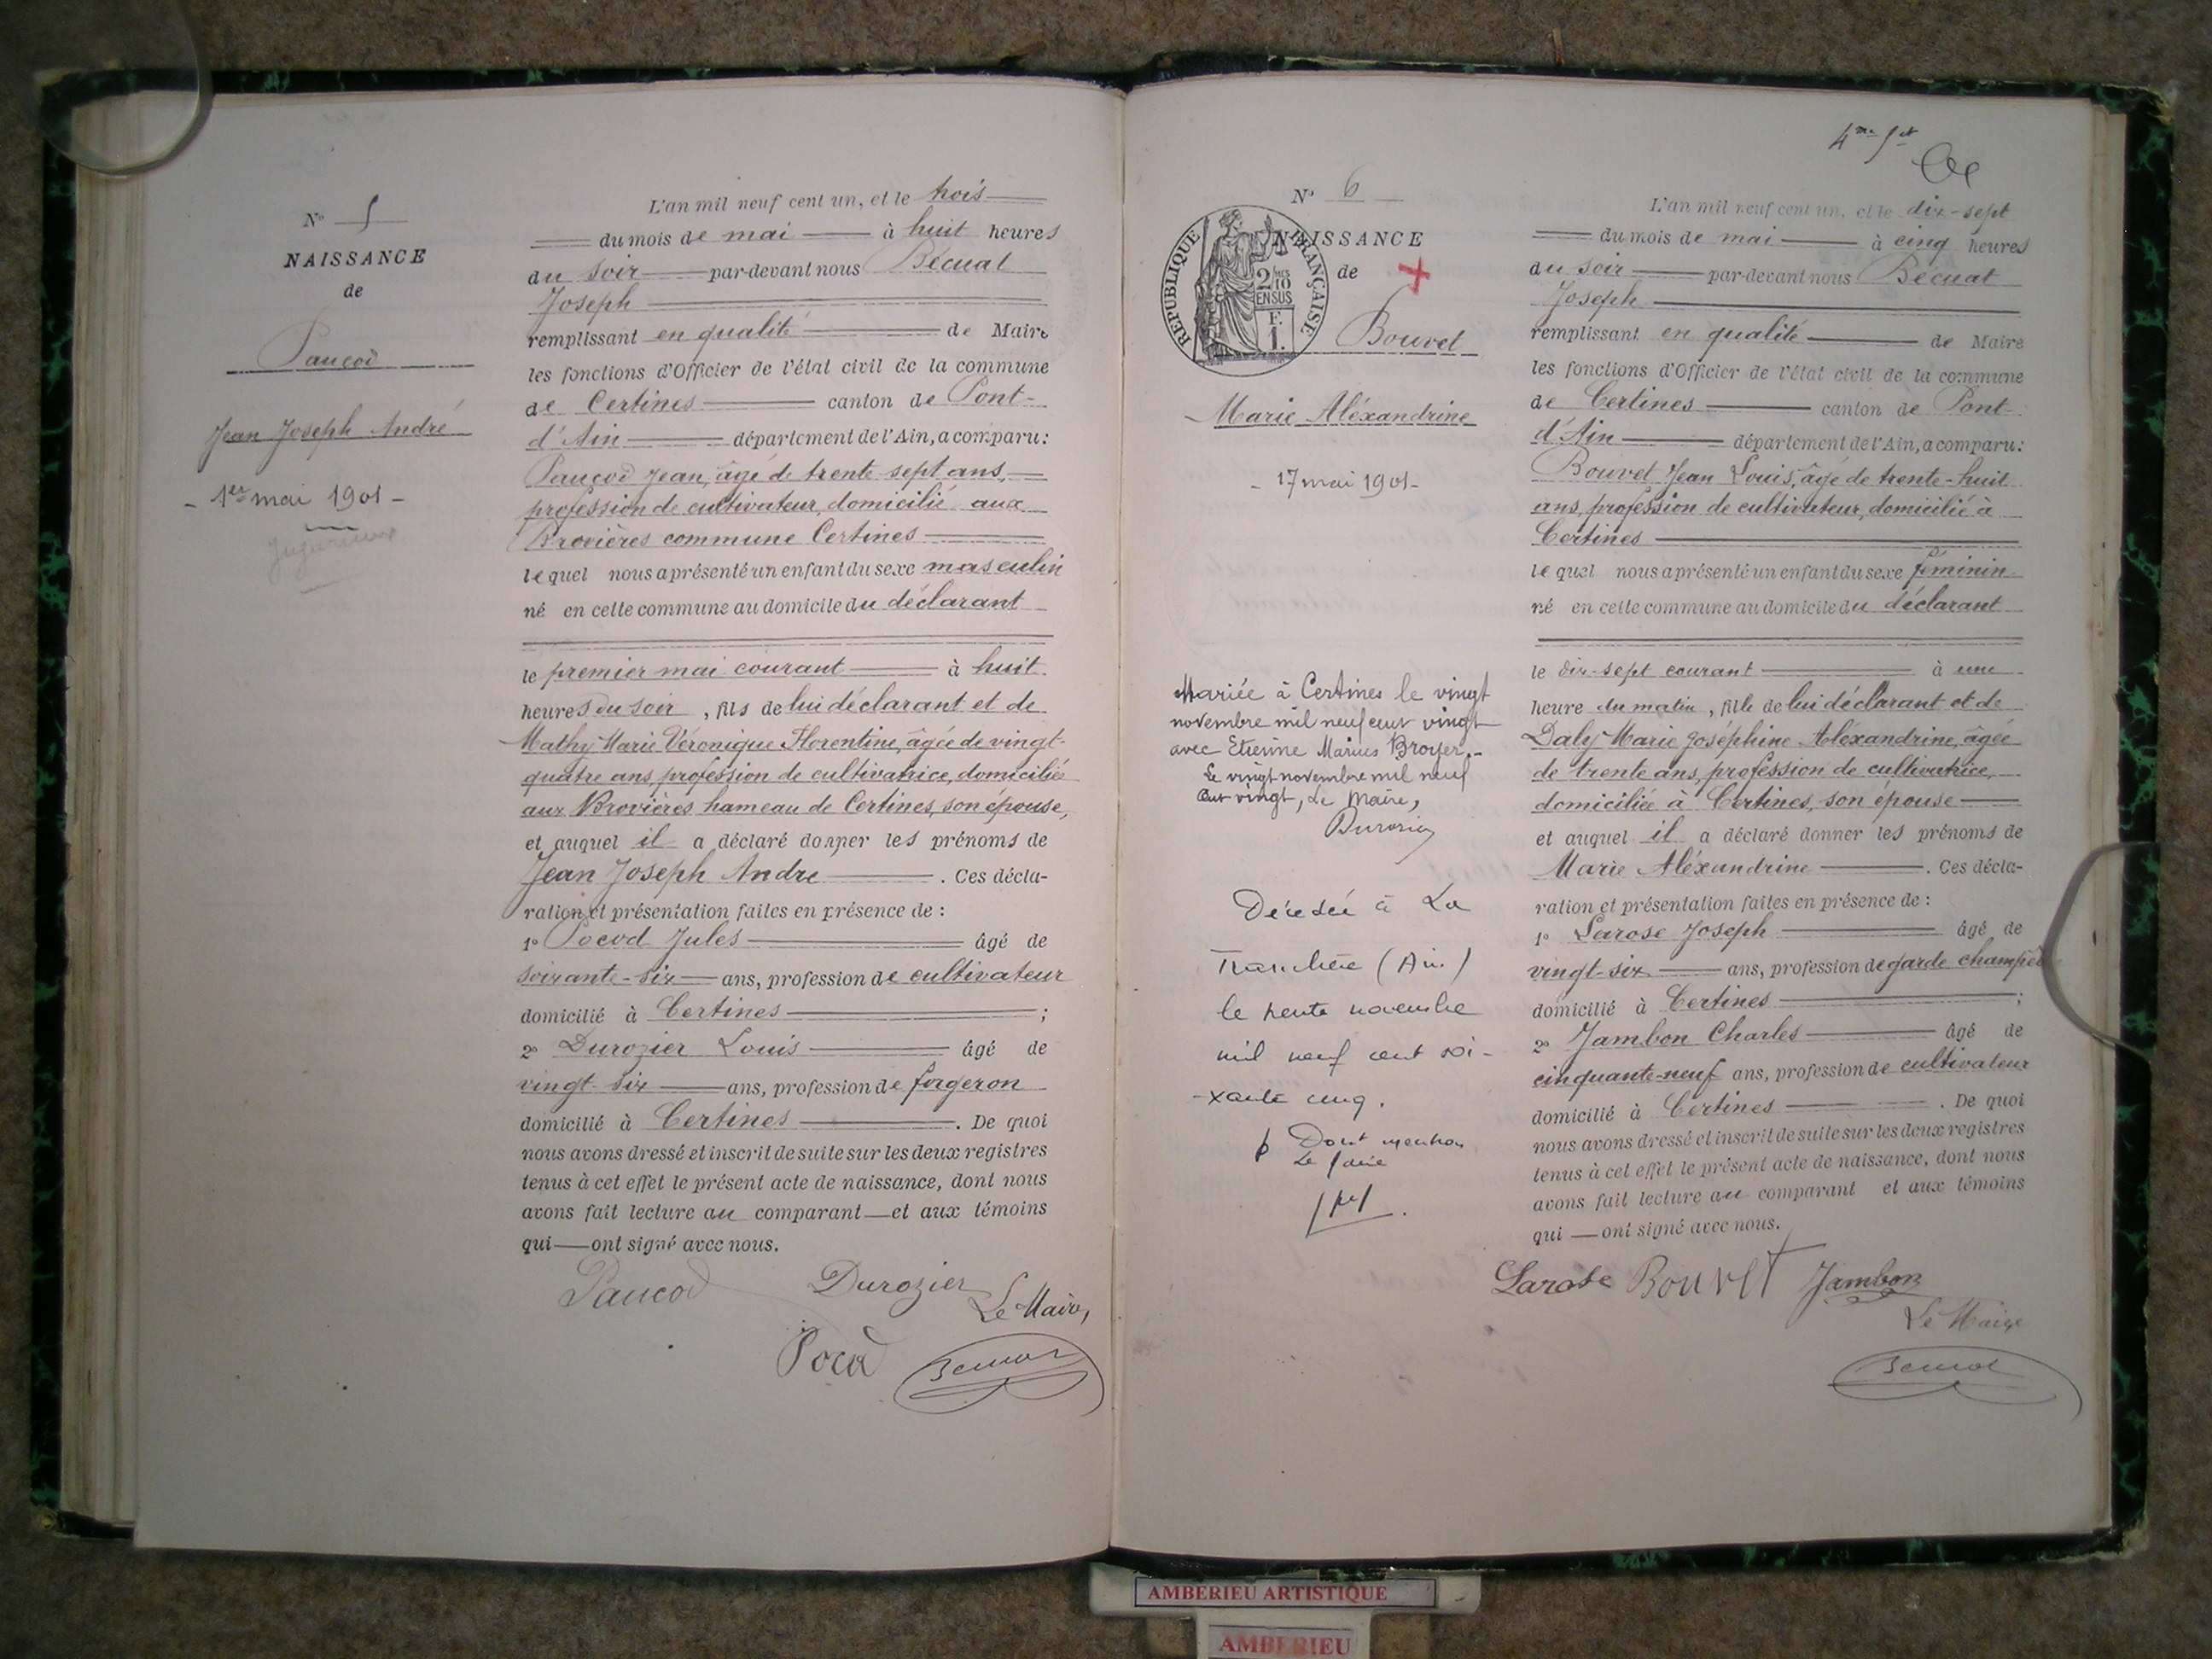 N° 5
NAISSANCE
de
Paucod
Jean Joseph André
- 1er mai 1901 -
Jujurieux
L'an mil neuf cent un, et le trois
du mois de mai à huit heures
du soir par-devant nous Bécuat
Joseph
remplissant en qualité de Maire
les fonctions d'Officier de l'état civil de la commune
de Certines canton de Pont-
d'Ain département de l'Ain, a comparu:
Paucod Jean, âgé de trente sept ans,
profession de cultivateur, domicilié aux
Brovières commune Certines
lequel nous a présenté un enfant du sexe masculin
né en cette commune au domicile du déclarant
le premier mai courant à huit
heures du soir, fils de lui déclarant et de
Mathy Marie Véronique Florentine, âgée de vingt-
quatre ans, profession de cultivatrice, domiciliée
aux Brovières hameau de Certines, son épouse,
et auquel il a déclaré donner les prénoms de
Jean Joseph Andre . Ces décla-
ration et présentation faites en présence de :
1° Pocod Jules âgé de
soixante-six ans, profession de cultivateur
domicilié à Certines ;
2° Durozier Louis âgé de
vingt-six ans, profession de forgeron
domicilié à Certines . De quoi
nous avons dressé et inscrit de suite sur les deux registres
tenus à cet effet le présent acte de naissance, dont nous
avons fait lecture au comparant et aux témoins
qui ont signé avec nous.
Paucod Durozier
Le Maire,
Pocod Becuat
4me
N° 6
RÉPUBLIQUE FRANÇAISE
2/10
EN SUS
F.
1.
NAISSANCE
de
Bouvet
Marie Aléxandrine
- 17 mai 1901 -
Mariée à Certines le vingt
novembre mil neuf cent vingt
avec Etienne Marius Broyer.-
Le vingt novembre mil neuf
cent vingt, Le Maire,
Durozier
Décédée à La
Tranclière (Ain)
le trente novembre
mil neuf cent soi-
-xante cinq.
Dont mention
L'an mil neuf cent un, et le dix-sept
du mois de mai à cinq heures
du soir par-devant nous Bécuat
Joseph
remplissant en qualité de Maire
les fonctions d'Officier de l'état civil de la commune
de Certines canton de Pont-
d'Ain département de l'Ain, a comparu:
Bouvet Jean Louis, âgé de trente-huit
ans, profession de cultivateur, domicilié à
Certines
lequel nous a présenté un enfant du sexe féminin
né en cette commune au domicile du déclarant
le dix-sept courant à une
heure du matin, fille de lui déclarant et de
Daly Marie Joséphine Aléxandrine, âgée
de trente ans, profession de cultivatrice,
domiciliée à Certines, son épouse
et auquel il a déclaré donner les prénoms de
Marie Aléxandrine . Ces décla-
ration et présentation faites en présence de :
1° Larose Joseph âgé de
vingt-six ans, profession de garde champêt
domicilié à Certines ;
2° Jambon Charles âgé de
cinquante-neuf ans, profession de cultivateur
domicilié à Certines . De quoi
nous avons dressé et inscrit de suite sur les deux registres
tenus à cet effet le présent acte de naissance, dont nous
avons fait lecture au comparant et aux témoins
qui ont signé avec nous.
Larose Bouvet Jambon
Le Maire
Becuat
AMBERIEU ARTISTIQUE
AMBERIEU